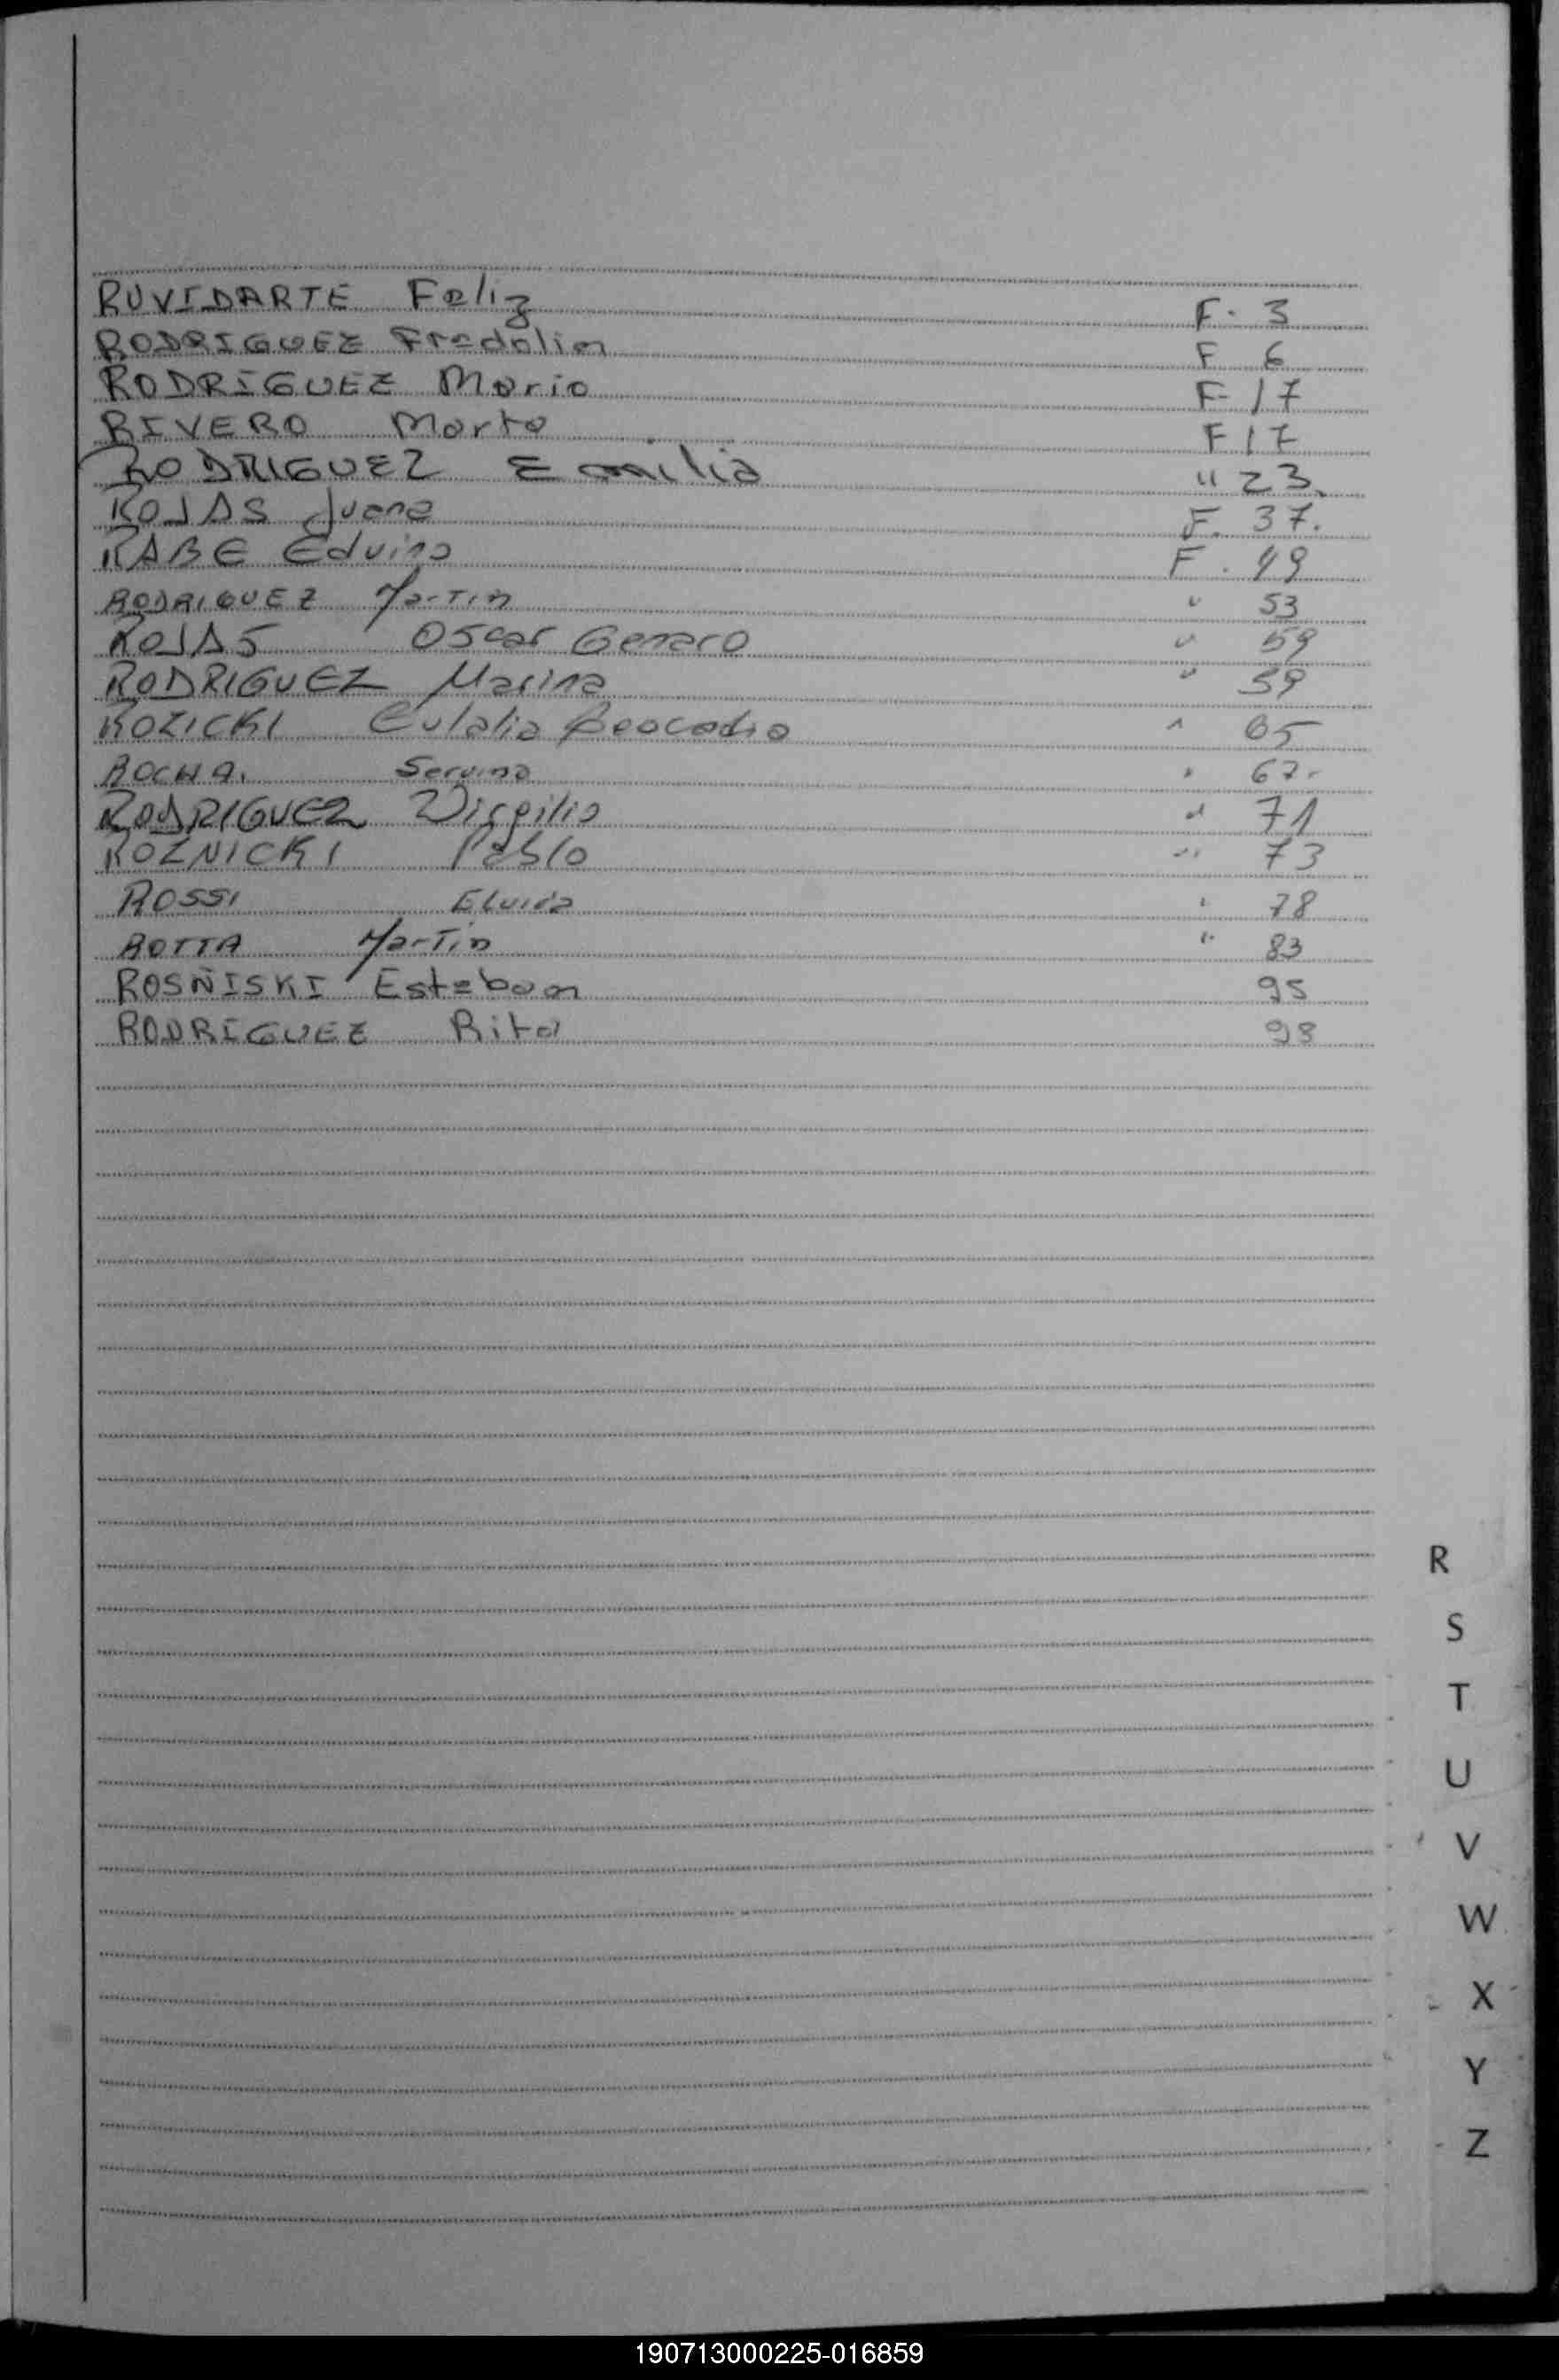 RUVIDARTE Feliz F. 3
RODRIGUEZ Fredolin F 6
RODRIGUEZ Mario F 17
RIVERO Marta F 17
RODRIGUEZ Emilia " 23.
ROJAS Juana F. 37.
RABE Eduino F. 49
RODRIGUEZ Martin " 53
ROJAS Oscar Genaro " 59
RODRIGUEZ Marina " 59
ROZICKI Eulalia Leocadia " 65
ROCHA. " 67.
RODRIGUEZ Virgilio " 71
ROZNICKI Pablo " 73
ROSSI Elvira " 78
ROTTA Martin " 83
ROSÑISKI Esteban 95
RODRIGUEZ Rita 98
R
S
T
U
V
W
X
Y
Z
190713000225-016859